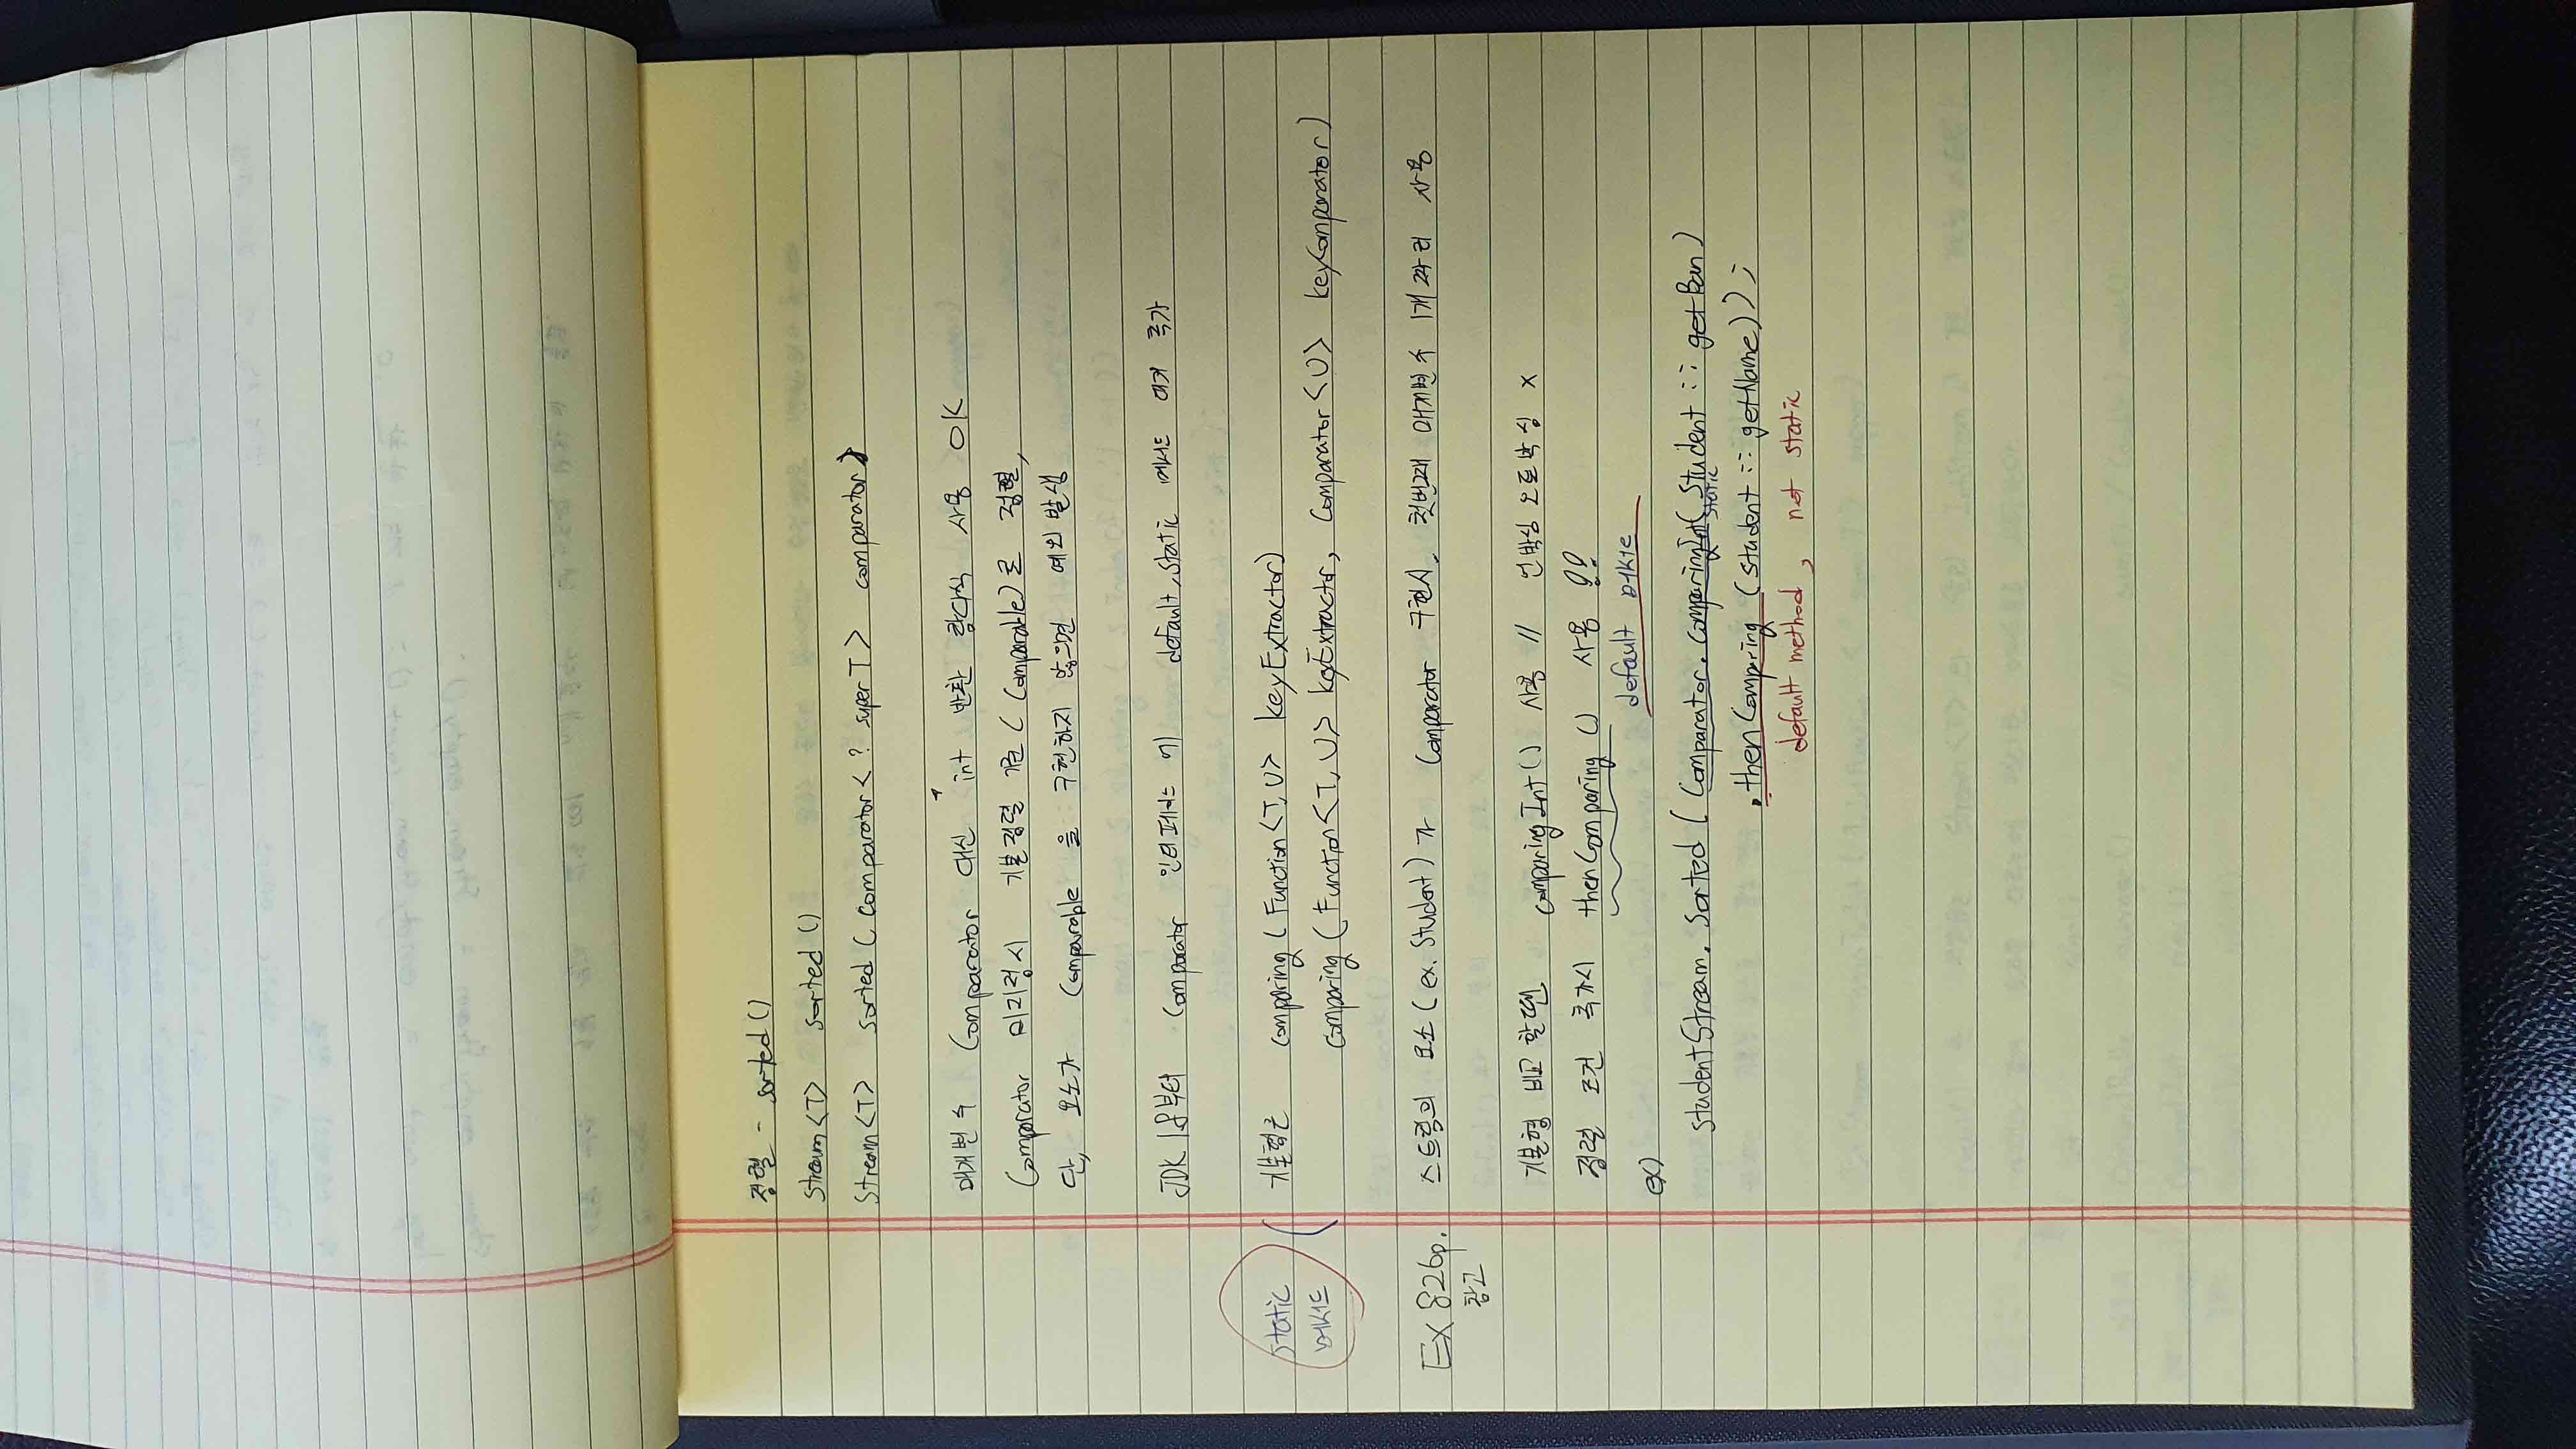 정렬 - sorted ()
Stream<T> sorted ()
Stream<T> sorted ( Comparator< ? super T > comparator )
매개변수 Comparator 대신 int 반환 람다식 사용 OK
Comparator 미지정시 기본정렬 기준 ( Comparable)로 정렬,
단, 요소가 Comparable 을 구현하지 않으면 예외 발생
JDK 1.8부터 Comparator 인터페이스에 default, static 메서드 여러 추가
static
메서드
기본형은 comparing ( Function<T,U> keyExtractor)
comparing ( Function<T, U> keyExtractor, Comparator<U> keyComparator )
Ex 826p.
참고
스트림의 요소 ( ex. Student ) 가 Comparator 구현시, 첫번째 매개변수 1개 짜리 사용
기본형 비교 할땐 comparingInt () 사용 // 언박싱 오토박싱 x
정렬 조건 추가시 thenComparing () 사용 !!
default 메서드
ex)
studentStream. Sorted ( Comparator. comparingInt( Student :: getBan )
static
.thenComparing (Student :: getName) ) ;
default method , not static